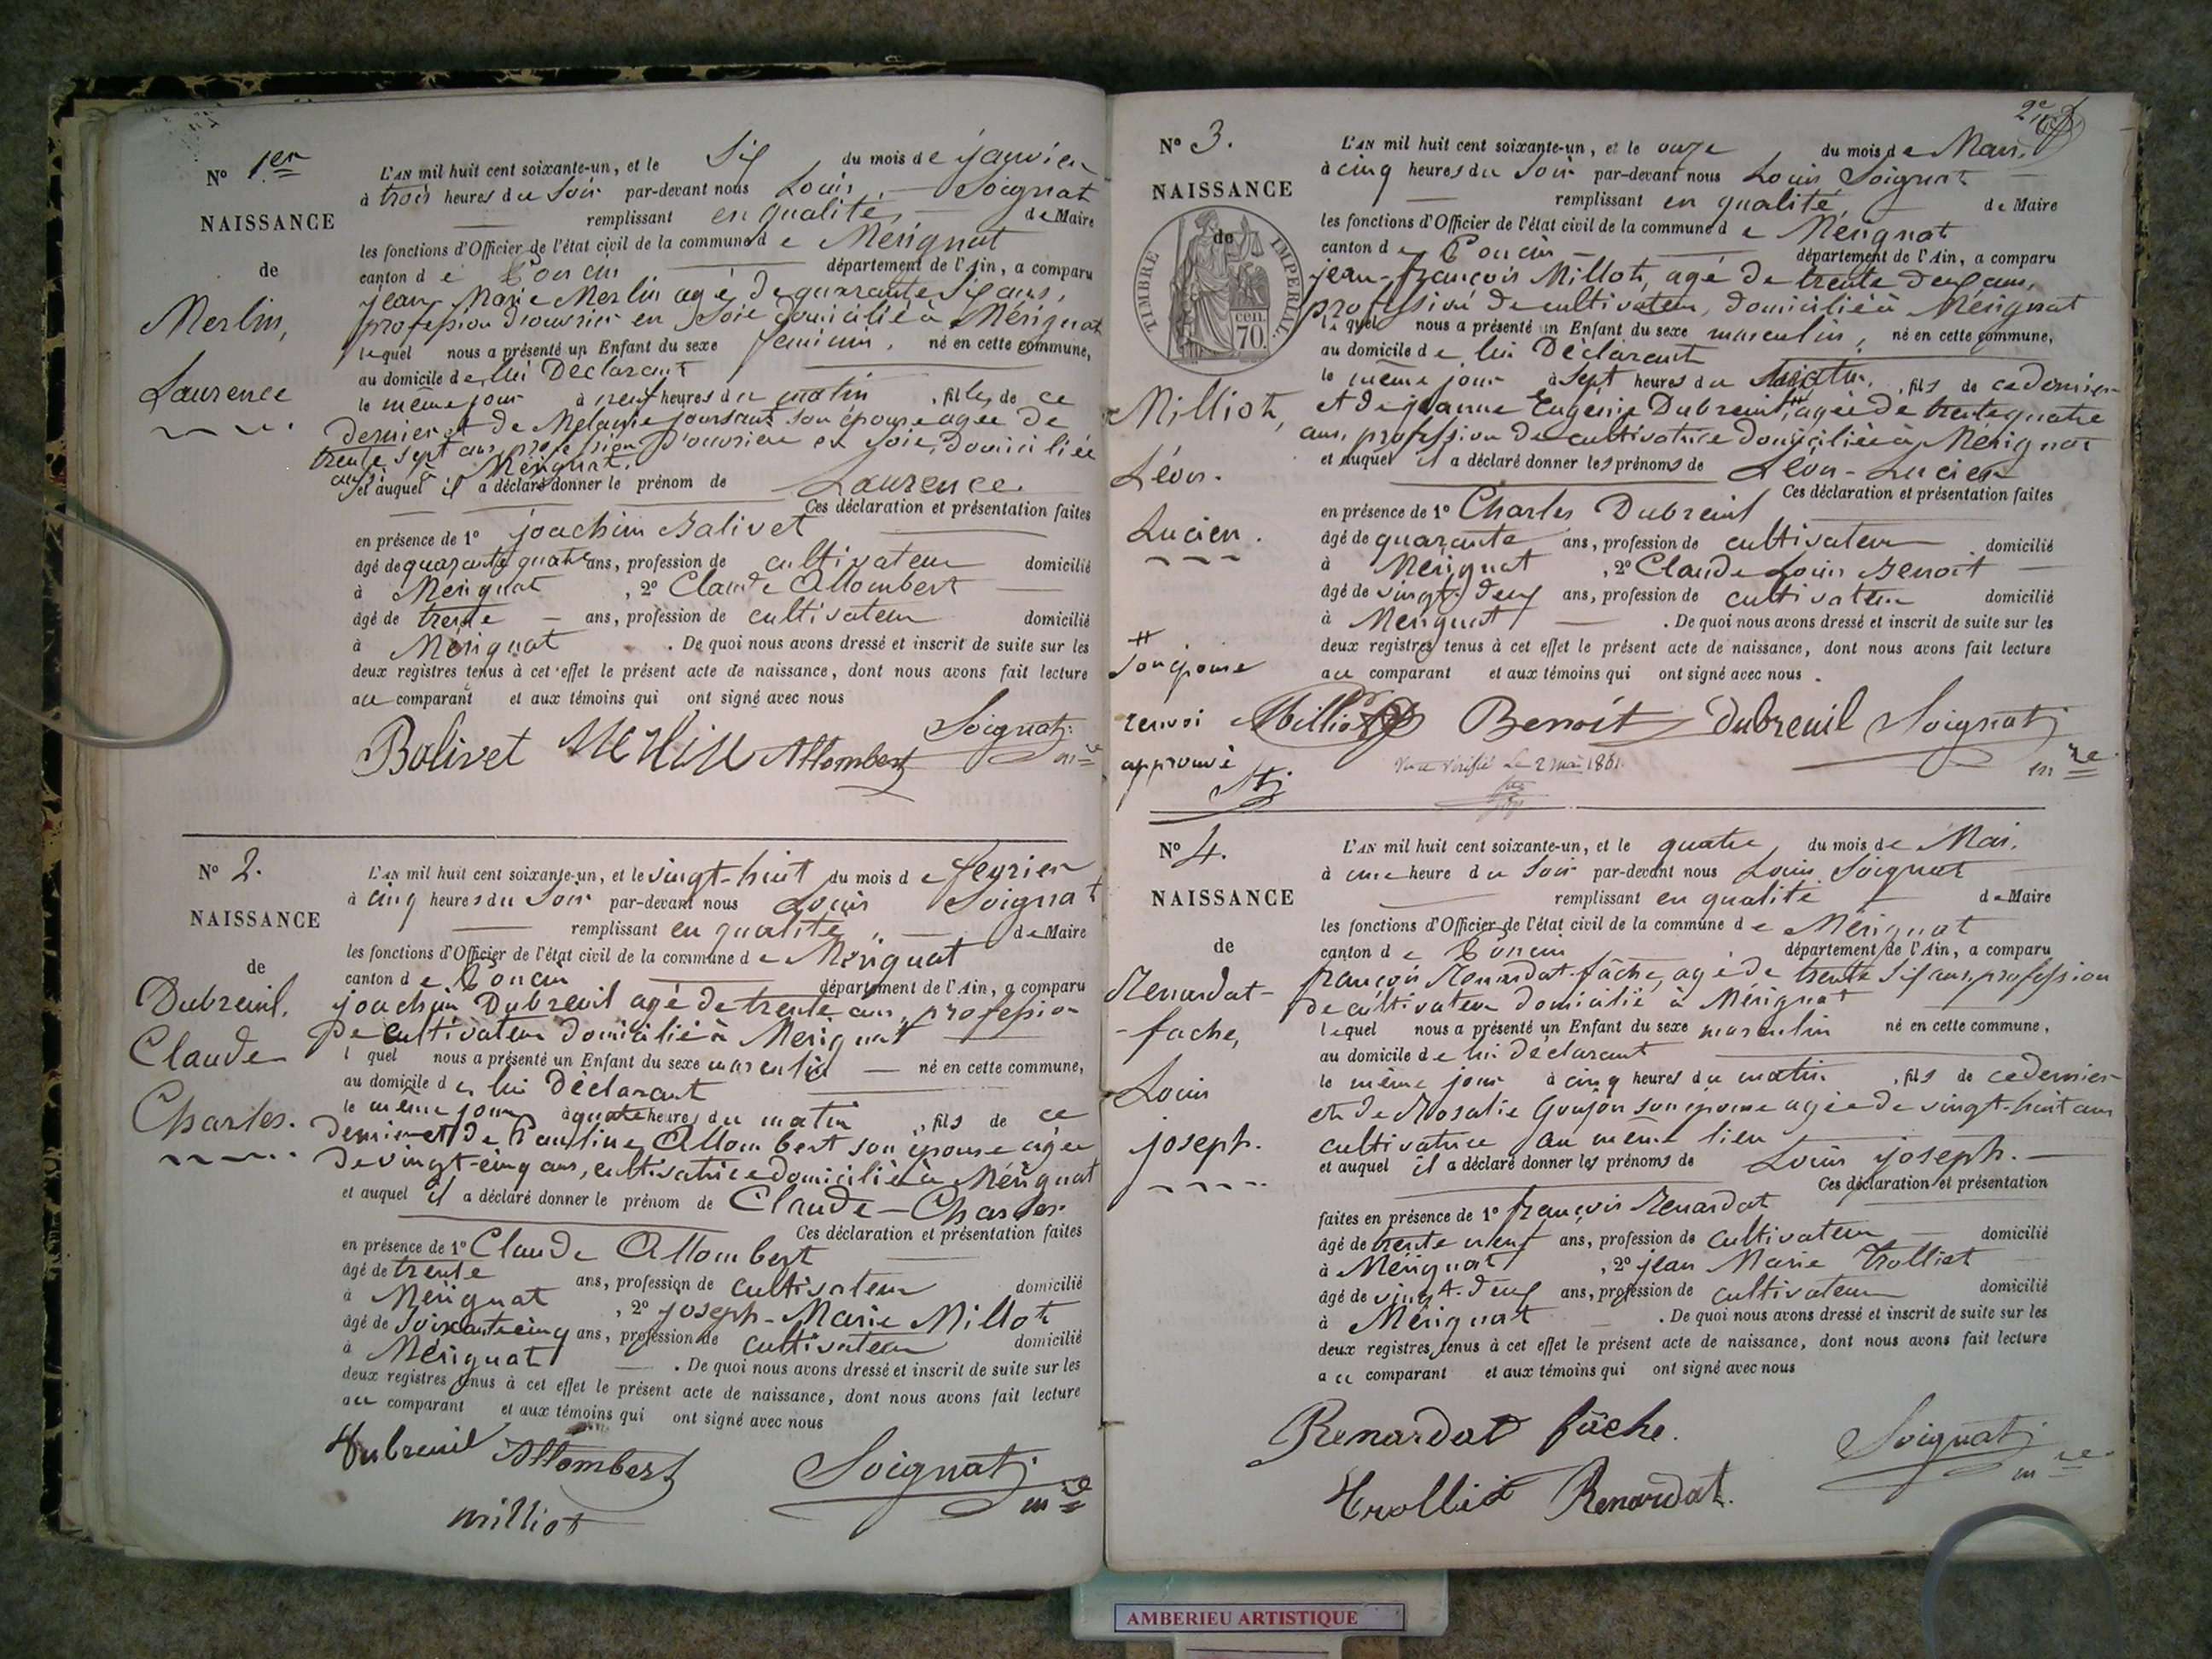 N° 1er
NAISSANCE
de
Merlin,
Laurence
L'AN mil huit cent soixante-un, et le Six du mois de janvier
à trois heures du Soir par-devant nous Louis Soignat
remplissant en qualité de Maire
les fonctions d'Officier de l'état civil de la commune de Mérignat
canton de Poncin département de l'Ain, a comparu
jean Marie Merlin agé de quarante Six ans,
profession d'ouvrier en Soie domicilié à Mérignat
lequel nous a présenté un Enfant du sexe féminin, né en cette commune,
au domicile de lui Déclarant
le même jour à neuf heures du matin, fille de ce
dernier et de Mélanie joursant son épouse agée de
trente sept ans, profession d'ouvrière en Soie, domiciliée
à Mérignat.
et auquel il a déclaré donner le prénom de Laurence.
Ces déclaration et présentation faites
en présence de 1° joachim Balivet
âgé de quarante quatre ans, profession de cultivateur domicilié
à Mérignat, 2° Claude Allombert
âgé de trente ans, profession de cultivateur domicilié
à Mérignat. De quoi nous avons dressé et inscrit de suite sur les
deux registres tenus à cet effet le présent acte de naissance, dont nous avons fait lecture
au comparant et aux témoins qui ont signé avec nous
Balivet Merlin Allombert Soignat
mre
N° 2.
NAISSANCE
de
Dubreuil,
Claude
Charles.
L'AN mil huit cent soixante-un, et le vingt-huit du mois de fevrier
à cinq heures du Soir par-devant nous Louis Soignat
remplissant en qualité, de Maire
les fonctions d'Officier de l'état civil de la commune de Mérignat
canton de Poncin département de l'Ain, a comparu
joachim Dubreuil agé de trente ans, profession
de cultivateur domicilié à Merignat
l quel nous a présenté un Enfant du sexe masculin né en cette commune,
au domicile de lui Déclarant
le même jour à quatre heures du matin, fils de ce
dernier et de Pauline Allombert son épouse agée
de vingt-cinq ans, cultivatrice domiciliée à Mérignat
et auquel il a déclaré donner le prénom de Claude-Charles.
Ces déclaration et présentation faites
en présence de 1° Claude Allombert
âgé de trente ans, profession de cultivateur domicilié
à Mérignat, 2° joseph-Marie Milloh
âgé de Soixante cinq ans, profession de cultivateur domicilié
à Mérignat. De quoi nous avons dressé et inscrit de suite sur les
deux registres tenus à cet effet le présent acte de naissance, dont nous avons fait lecture
au comparant et aux témoins qui ont signé avec nous
Dubreuil Allombert Soignat
milliot mre
2e
N° 3.
NAISSANCE
de
TIMBRE IMPERIAL
cen. 70.
Milliot,
Léon.
Lucien.
# Son épouse
renvoi
approuvé
L'AN mil huit cent soixante-un, et le onze du mois de Mars,
à cinq heures du Soir par-devant nous Louis Soignat
remplissant en qualité, de Maire
les fonctions d'Officier de l'état civil de la commune de Mérignat
canton de Poncin département de l'Ain, a comparu
jean-françois Milloh, agé de trente deux ans,
profession de cultivateur, domicilié à Mérignat
lequel nous a présenté un Enfant du sexe masculin, né en cette commune,
au domicile de lui Déclarant
le même jour à Sept heures du matin, fils de ce dernier
et de jeanne Eugénie Dubreuil,# agée de trente quatre
ans, profession de cultivatrice domiciliée à Mérignat
et auquel il a déclaré donner les prénoms de Léon-Lucien
Ces déclaration et présentation faites
en présence de 1° Charles Dubreuil
âgé de quarante ans, profession de cultivateur domicilié
à Mérignat, 2° Claude Louis Benoit
âgé de vingt-deux ans, profession de cultivateur domicilié
à Mérignat. De quoi nous avons dressé et inscrit de suite sur les
deux registres tenus à cet effet le présent acte de naissance, dont nous avons fait lecture
au comparant et aux témoins qui ont signé avec nous.
Milliot Benoit Dubreuil Soignat
mre
Vu et vérifié le 2 mai 1861
N° 4.
NAISSANCE
de
Renardat-
-fache,
Louis
joseph.
L'AN mil huit cent soixante-un, et le quatre, du mois de Mai.
à une heure du Soir par-devant nous Louis Soignat
remplissant en qualité de Maire
les fonctions d'Officier de l'état civil de la commune de Mérignat
canton de Poncin département de l'Ain, a comparu
françois Renardat-fâche, agé de trente Six ans, profession
de cultivateur domicilié à Mérignat
lequel nous a présenté un Enfant du sexe masculin né en cette commune,
au domicile de lui déclarant
le même jour à cinq heures du matin, fils de ce dernier
et de Rosalie Goujon son épouse agée de vingt-huit ans
cultivatrice au même lieu
et auquel il a déclaré donner les prénoms de Louis joseph.
Ces déclaration et présentation
faites en présence de 1° françois Renardat
âgé de trente neuf ans, profession de cultivateur domicilié
à Mérignat, 2° jean Marie Trolliet
âgé de vingt-deux ans, profession de cultivateur domicilié
à Mérignat. De quoi nous avons dressé et inscrit de suite sur les
deux registres tenus à cet effet le présent acte de naissance, dont nous avons fait lecture
au comparant et aux témoins qui ont signé avec nous
Renardat fâche. Soignat
mre
Trolliet Renardat.
AMBERIEU ARTISTIQUE